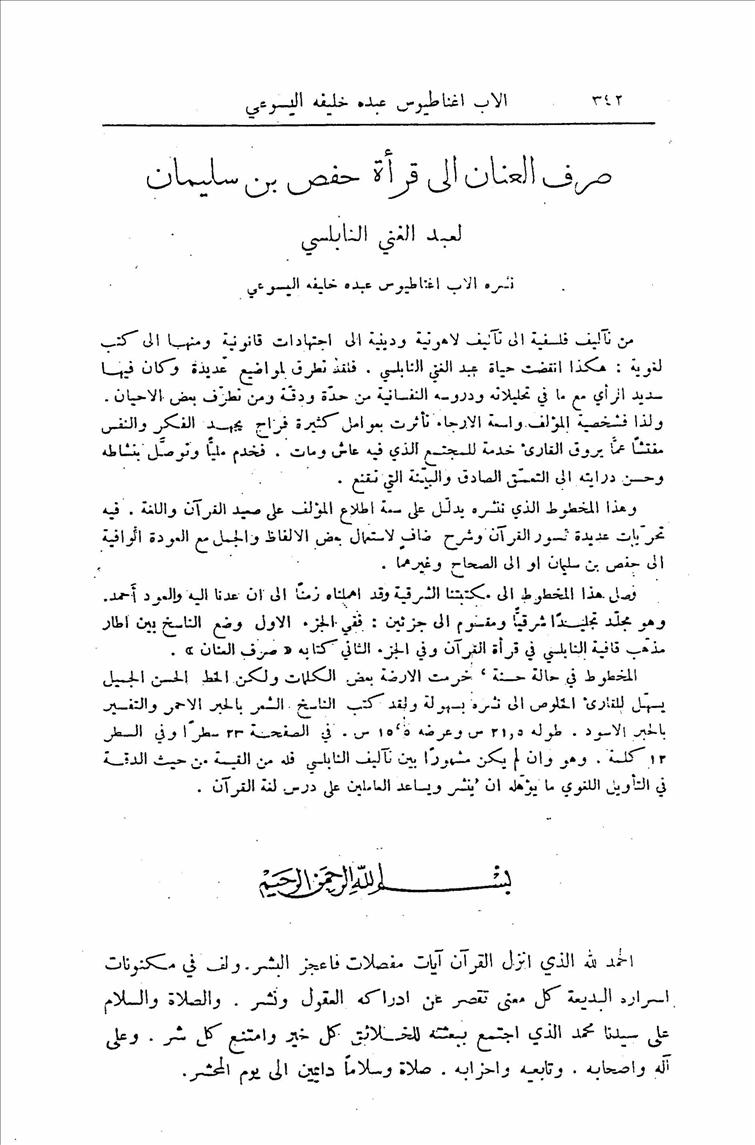 ٣٤٢ الاب اغناطيوس عبده خليفه اليسوعي
صرف العنان الى قرأة حفص بن سليمان
لعبد الغني النابلسي
نشره الاب اغناطيوس عبده خليفه اليسوعي
من تآليف فلسفية الى تآليف لاهوتية ودينية الى اجتهادات قانونية ومنها الى كتب
لغوية : هكذا انقضت حياة عبد الغني النابلسي . فلقد تطرق لمواضيع عديدة وكان فيها
سديد الرأي مع ما في تحليلاته ودروسه النفسانية من حدّة ودقّة ومن تطرّف بعض الاحيان .
ولذا فشخصية المؤلف واسعة الارجاء تأثرت بعوامل كثيرة فراح يجهد الفكر والنفس
مفتشًا عمّا يروق القارئ خدمة للمجتمع الذي فيه عاش ومات . فخدم مليًّا وتوصّل بنشاطه
وحسن درايته الى التعمق الصادق والبيّنة التي تقنع .
وهذا المخطوط الذي ننشره يدلّ على سعة اطلاع المؤلف على صعيد القرآن واللغة . فيه
تحريات عديدة لسور القرآن وشرح ضافٍ لاستعمال بعض الالفاظ والجمل مع العودة الوافية
الى حفص بن سليمان او الى الصحاح وغيرهما .
وصل هذا المخطوط الى مكتبتنا الشرقية وقد اهملناه زمنًا الى ان عدنا اليه والعود أحمد.
وهو مجلّد تجليدًا شرقيًّا ومقسوم الى جزئين : ففي الجزء الاول وضع الناسخ بين اطار
مذهب قافية النابلسي في قرأة القرآن وفي الجزء الثاني كتابه « صرف العنان » .
المخطوط في حالة حسنة ، خرمت الارضة بعض الكلمات ولكن الخط الحسن الجميل
يسهّل للقارئ الخلوص الى نشره بسهولة ولقد كتب الناسخ الشعر بالحبر الاحمر والتفسير
بالحبر الاسود . طوله ٢١,٥ س وعرضه ١٥,٥ س . في الصفحة ٢٣ سطرًا وفي السطر
١٢ كلمة . وهو وان لم يكن مشهورًا بين تآليف النابلسي فله من القيمة من حيث الدقة
في التأويل اللغوي ما يؤهّله ان يُنشر ويساعد العاملين على درس لغة القرآن .
بسم الله الرحمن الرحيم
الحمد لله الذي انزل القرآن آيات مفصلات فاعجز البشر. ولف في مكنونات
اسراره البديعة كل معنى تقصر عن ادراكه العقول ونشر . والصلاة والسلام
على سيدنا محمد الذي اجتمع ببعثته للخلائق كل خير وامتنع كل شر . وعلى
آله واصحابه . وتابعيه واحزابه . صلاة وسلاماً دايمين الى يوم المحشر.